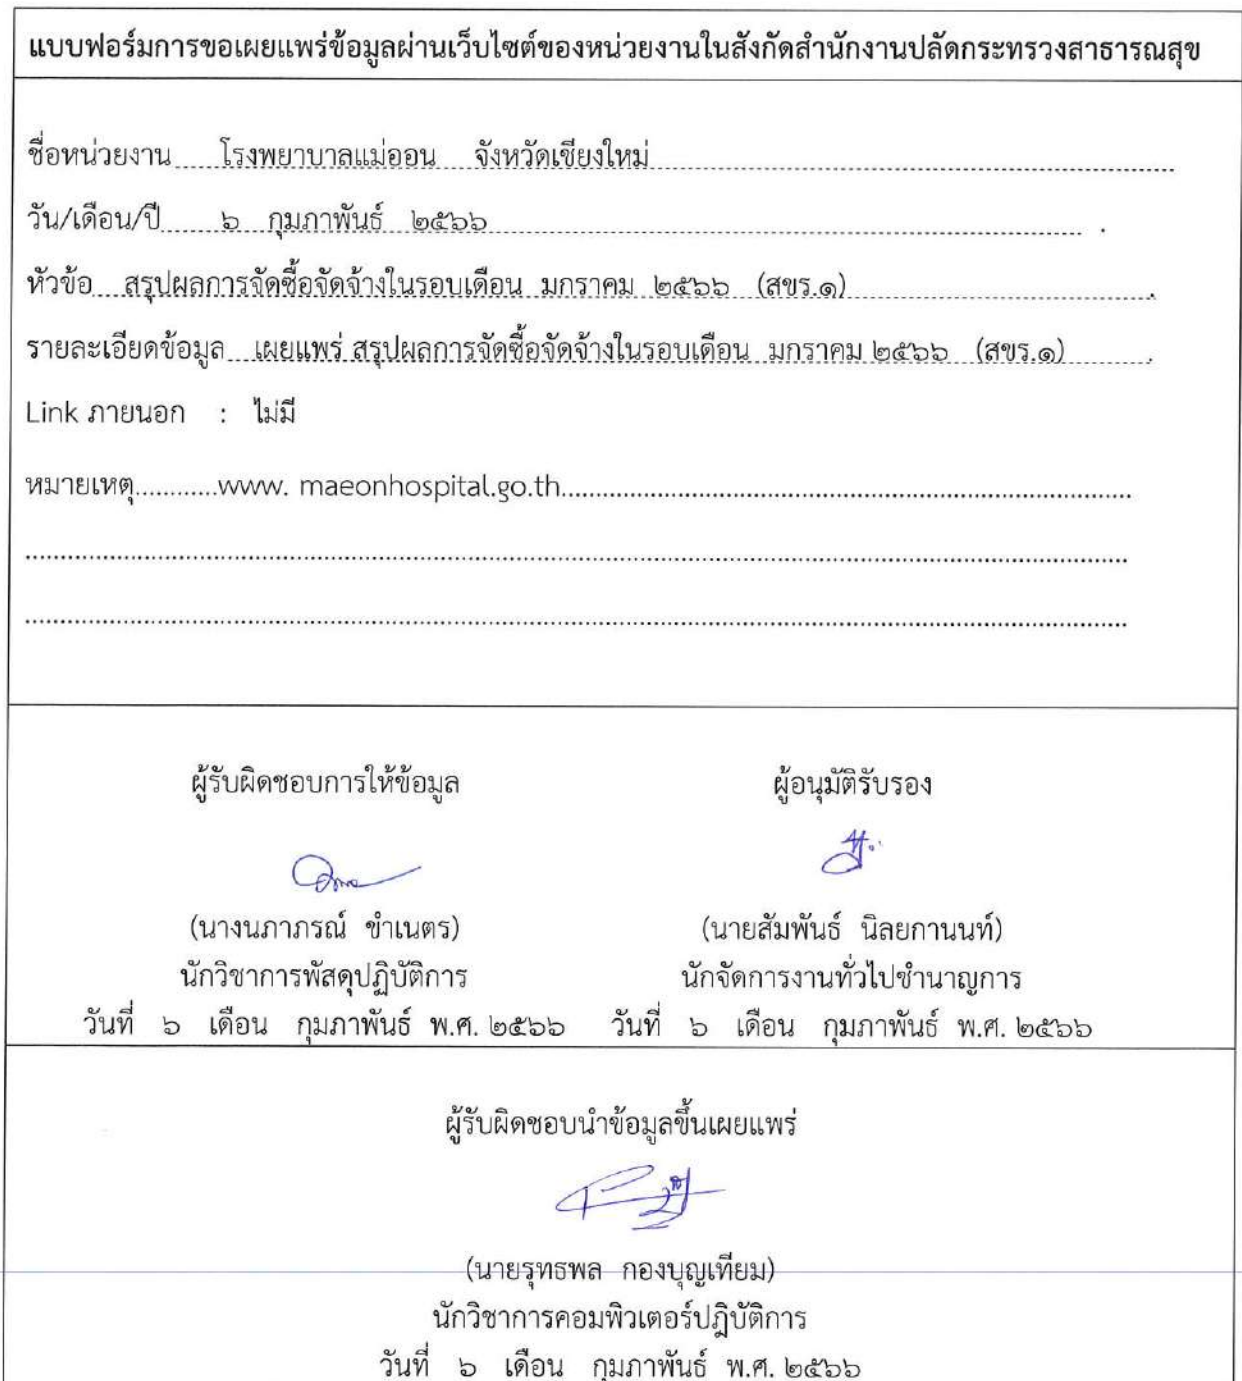 แบบฟอร์มการขอเผยแพร่ข้อมูลผ่านเว็บไซต์ของหน่วยงานในสังกัดสำนักงานปลัดกระทรวงสาธารณสุข
ชื่อหน่วยงาน โรงพยาบาลแม่ออน จังหวัดเชียงใหม่
วัน/เดือน/ปี ๖ กุมภาพันธ์ ๒๕๖๖
หัวข้อ สรุปผลการจัดซื้อจัดจ้างในรอบเดือน มกราคม ๒๕๖๖ (สขร.๑)
รายละเอียดข้อมูล เผยแพร่ สรุปผลการจัดซื้อจัดจ้างในรอบเดือน มกราคม ๒๕๖๖ (สขร.๑)
Link ภายนอก : ไม่มี
หมายเหตุ............www. maeonhospital.go.th............
ผู้รับผิดชอบการให้ข้อมูล ผู้อนุมัติรับรอง
(นางนภาภรณ์ ขำเนตร) (นายสัมพันธ์ นิลยกานนท์)
นักวิชาการพัสดุปฏิบัติการ นักจัดการงานทั่วไปชำนาญการ
วันที่ ๖ เดือน กุมภาพันธ์ พ.ศ. ๒๕๖๖ วันที่ ๖ เดือน กุมภาพันธ์ พ.ศ. ๒๕๖๖
ผู้รับผิดชอบนำข้อมูลขึ้นเผยแพร่
(นายรุทธพล กองบุญเทียม)
นักวิชาการคอมพิวเตอร์ปฏิบัติการ
วันที่ ๖ เดือน กุมภาพันธ์ พ.ศ. ๒๕๖๖